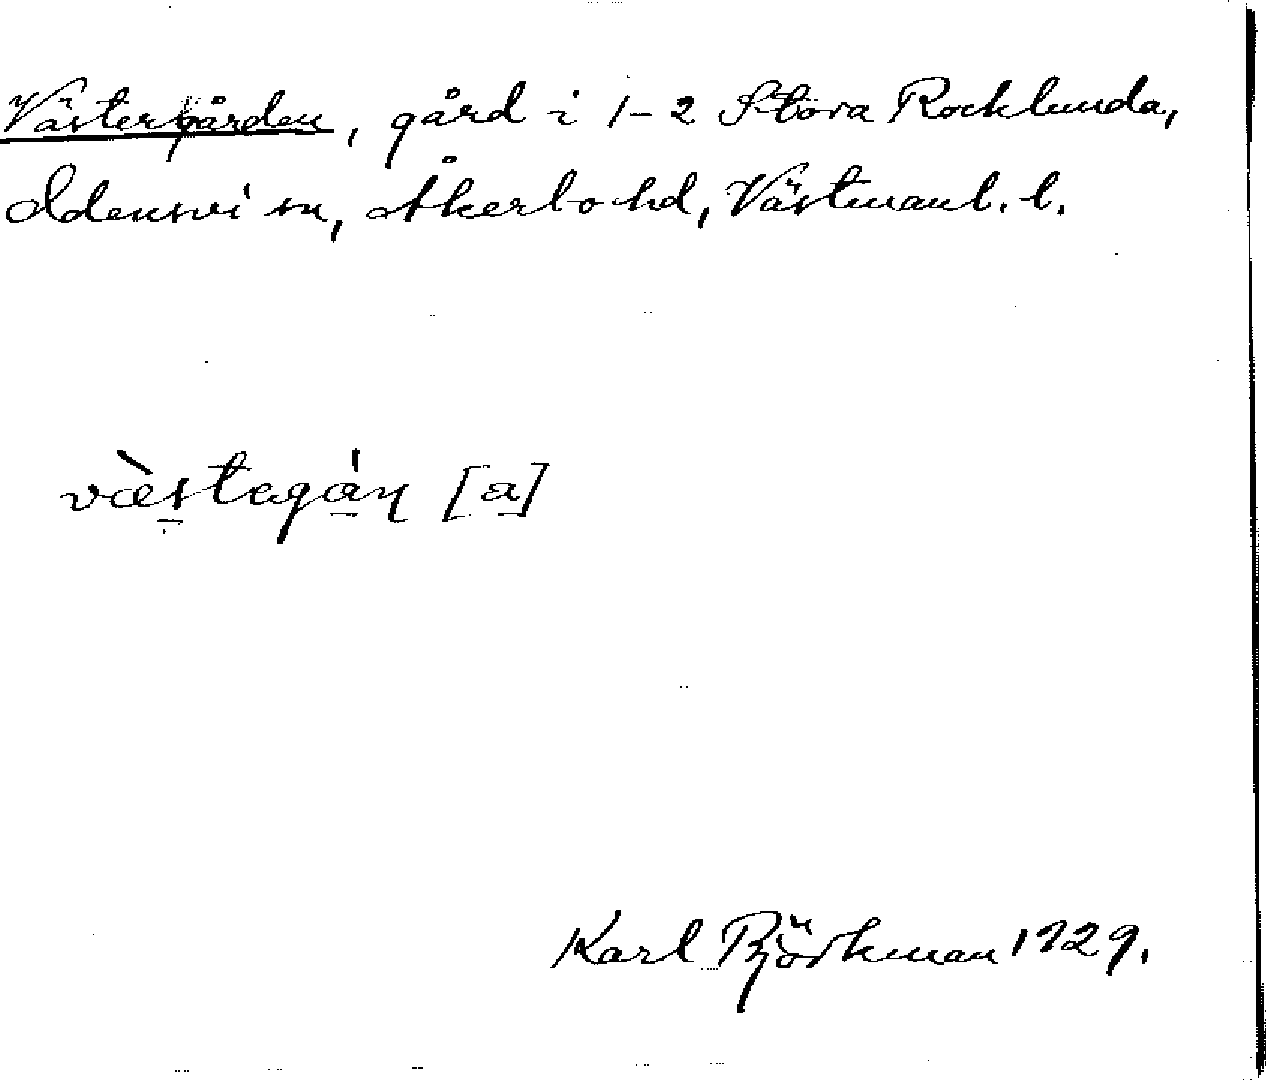 Västergården, gård i 1-2 Stora Rocklunda,
Odensvi sn, Åkerbo hd, Västmanl. l.
væ̀stagáṇ [a]
Karl Björkman 1929.